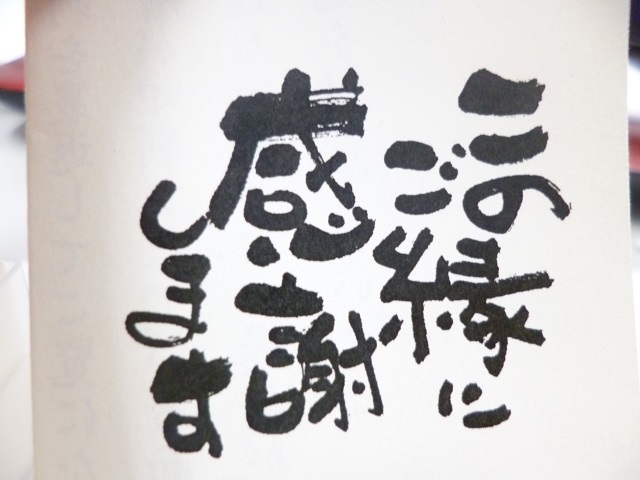 このご縁に
感謝
します